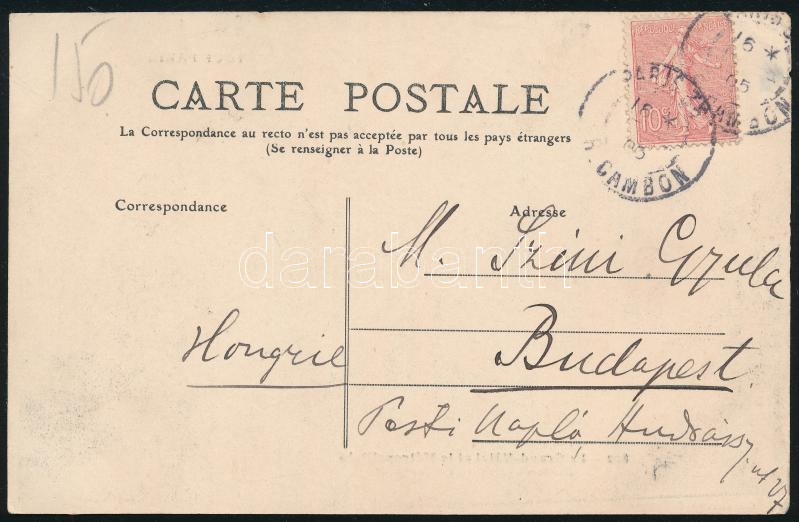 150
CARTE POSTALE
La Correspondance au recto n'est pas acceptée par tous les pays étrangers
(Se renseigner à la Poste)
Correspondance
Adresse
REPUBLIQUE FRANÇAISE
10c
PARIS
16 *
05
R. CAMBON
M. Szini Gyula
Hongrie
Budapest
Pesti Napló
darabanth